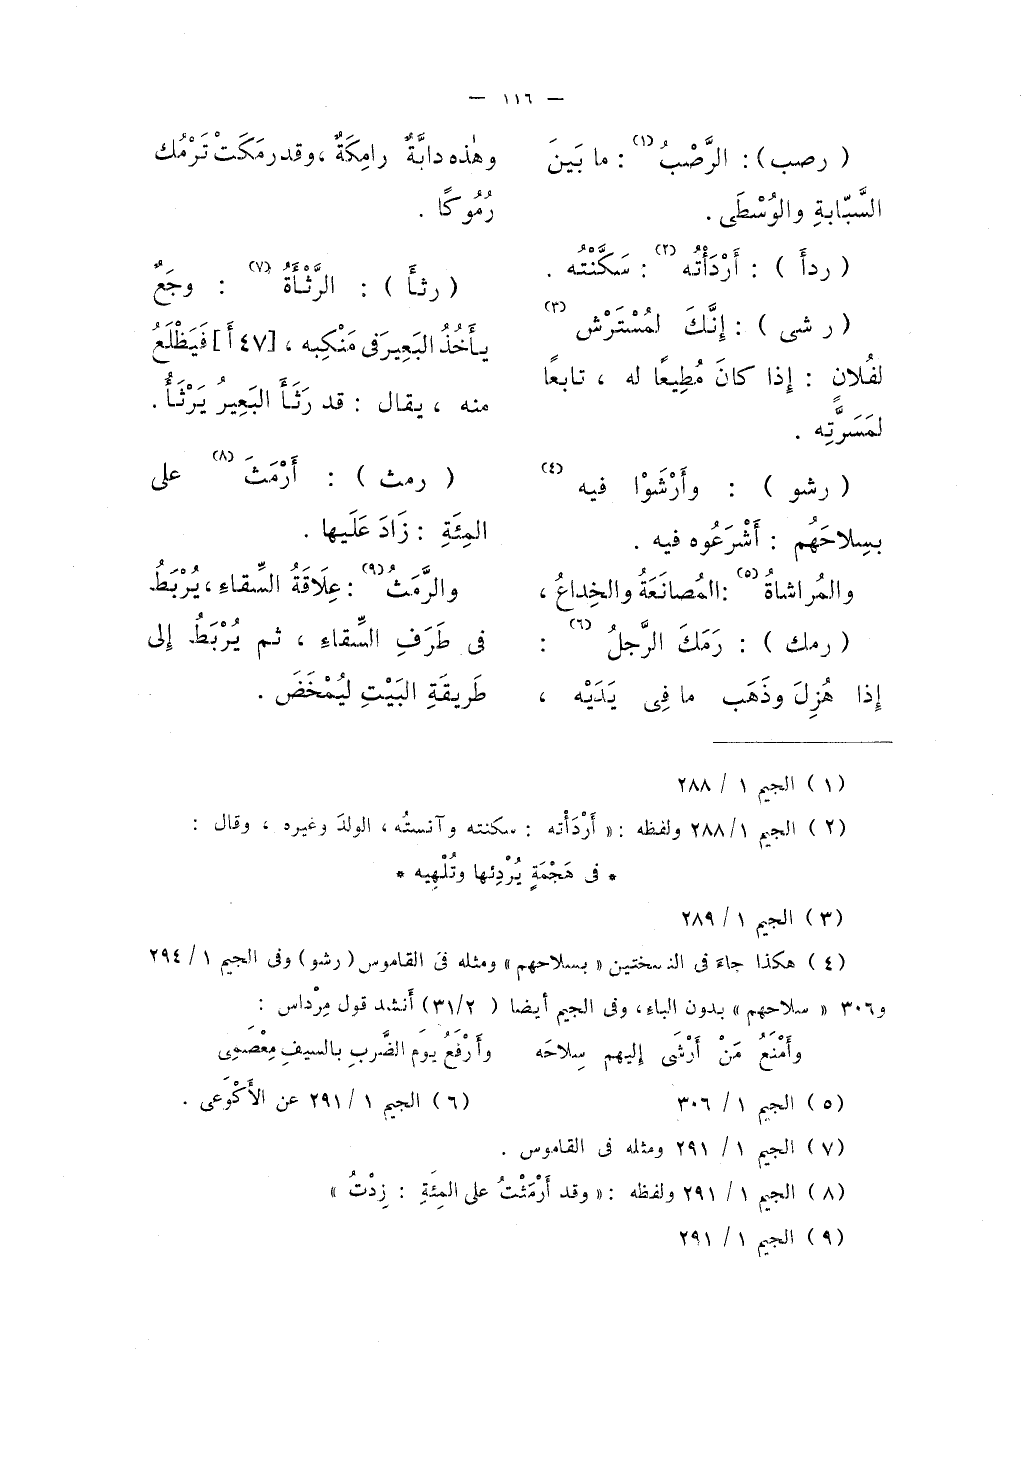 — ١١٦ —
( رصب ) : الرَّصْبُ (١) : ما بَينَ
السَّبّابةِ والوُسْطَى .
( ردأ ) : أَرْدَأْتُه (٢) : سَكَّنْتُه .
( ر شى ) : إِنَّكَ لمُسْتَرْشٍ (٣)
لفُلانٍ : إِذا كانَ مُطِيعًا له ، تابعًا
لمَسَرَّتِه .
( رشو ) : وأَرْشَوْا فيه (٤)
بسِلاحَهُم : أَشْرَعُوه فيه .
والمُراشاةُ (٥) : المُصانَعَةُ والخِداعُ ،
( رمك ) : رَمَكَ الرَّجلُ (٦) :
إِذا هُزِلَ وذَهَب ما فِى يَدَيْه ،
وهٰذه دابَّةٌ رامِكَةٌ ، وقد رمَكَتْ تَرْمُك
رُمُوكًا .
( رثأ ) : الرَّثْأَةُ (٧) : وجَعٌ
يأْخُذُ البَعِيرَ فى مَنْكِبه ، [٤٧ أ] فَيَظْلَعُ
منه ، يقال : قد رَثَأَ البَعِيرُ يَرْثَأُ .
( رمث ) : أَرْمَثَ (٨) على
المِئَةِ : زَادَ عَلَيها .
والرَّمَثُ (٩) : عِلَاقَةُ السِّقاءِ ، يُرْبَطُ
فى طَرَفِ السِّقاءِ ، ثم يُرْبَطُ إِلى
طَرِيقَةِ البَيْتِ ليُمْخَضَ .
( ١ ) الجيم ١ / ٢٨٨
( ٢ ) الجيم ٢٨٨/١ ولفظه : « أَرْدَأْته : سكنته وآنستُه ، الولدَ وغيره ، وقال :
* فى هَجْمَةٍ يُرْدِئها وتُلْهِيه *
( ٣ ) الجيم ١ / ٢٨٩
( ٤ ) هكذا جاءَ فى النسختين « بسلاحهم » ومثله فى القاموس ( رشو ) وفى الجيم ١ / ٢٩٤
و٣٠٦ « سلاحهم » بدون الباءِ ، وفى الجيم أيضا ( ٣١/٢ ) أَنشد قول مِرْداس :
وأَمْنَعُ مَنْ أَرْشَى إِليهم سِلاحَه وأَرْفَعُ يومَ الضَّربِ بالسيفِ مِعْصَمِى
( ٥ ) الجيم ١ / ٣٠٦ ( ٦ ) الجيم ٢٩١/١ عن الأَكْوَعى .
( ٧ ) الجيم ١ / ٢٩١ ومثله فى القاموس .
( ٨ ) الجيم ١ / ٢٩١ ولفظه : « وقد أَرْمَثْتُ على المِئَةِ : زِدْتُ »
( ٩ ) الجيم ١ / ٢٩١